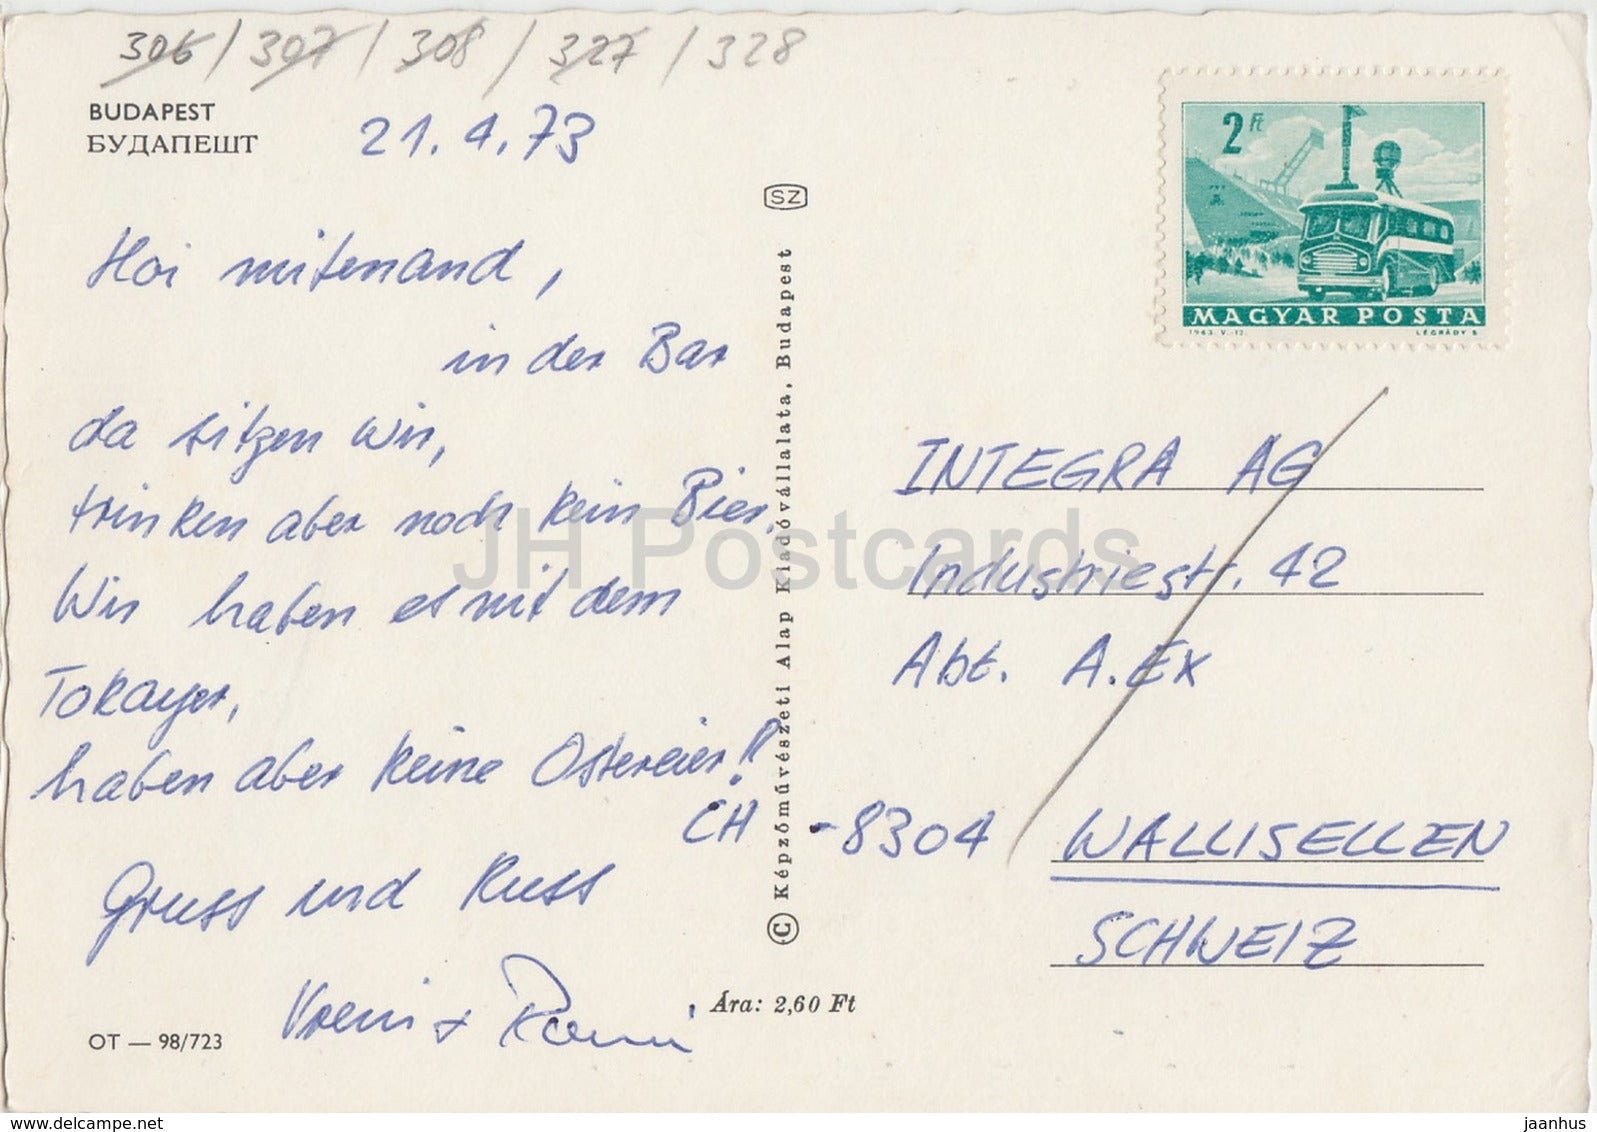 306 / 307 / 308 / 327 / 328
BUDAPEST
БУДАПЕШТ
21.4.73
Hoi mitenand,
in der Bar
da sitzen wir,
trinken aber noch kein Bier.
Wir haben es mit dem
Tokayer,
haben aber keine Ostereier!!
Gruss und Kuss
Vreni +
OT — 98/723
SZ
© Képzőművészeti Alap Kiadóvállalata, Budapest
Ára: 2,60 Ft
2 Ft
MAGYAR POSTA
1963. V.-12.
LÉGRÁDY S.
INTEGRA AG
Industriestr. 42
Abt. A.EX
CH -8304 WALLISELLEN
SCHWEIZ
JH Postcards
www.delcampe.net
jaanhus